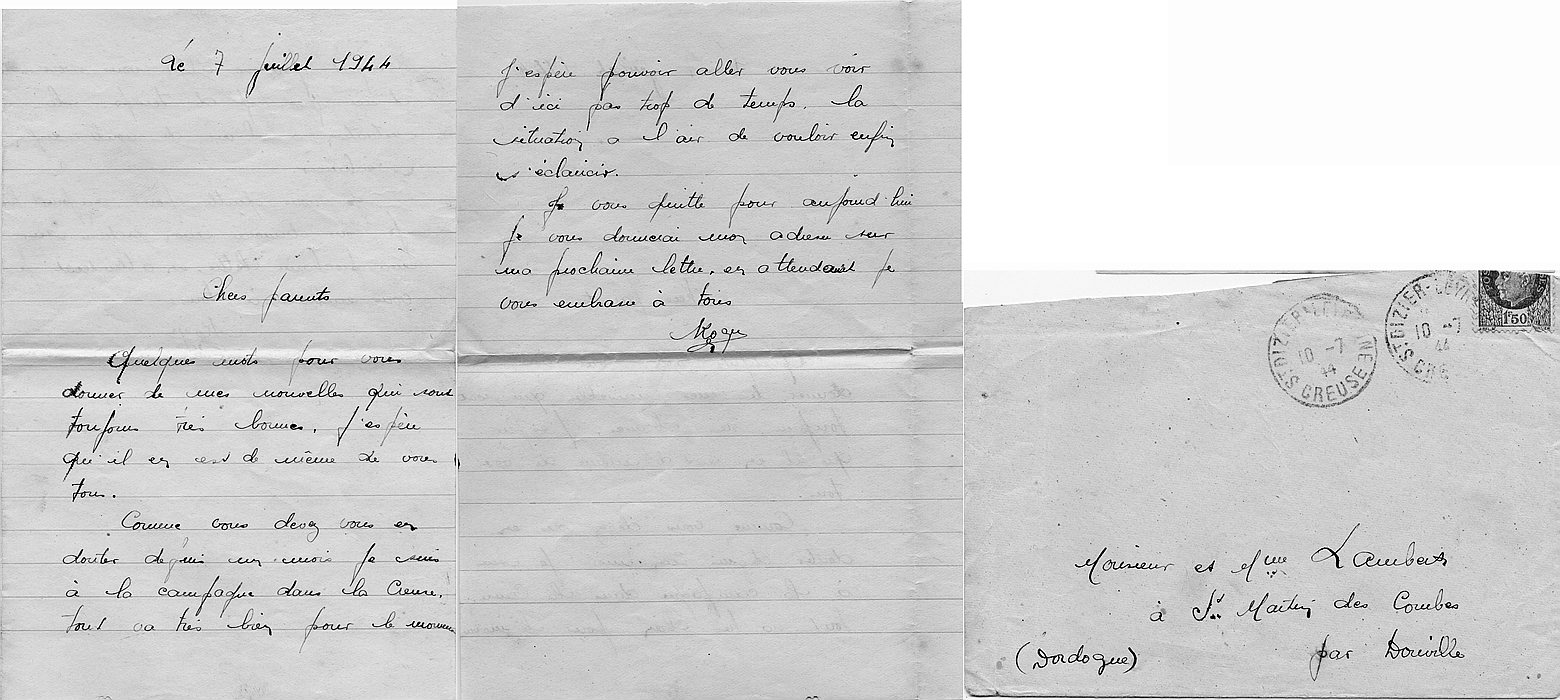 Le 7 juillet 1944
Chers parents
Quelques mots pour vous
donner de mes nouvelles qui sont
toujours très bonnes. J'espère
qu'il en est de même de vous
tous.
Comme vous devez vous en
douter depuis un mois je suis
à la campagne dans la Creuse.
tout va très bien pour le momen
J'espère pouvoir aller vous voir
d'ici pas trop de temps. la
situation a l'air de vouloir enfin
s'éclaircir.
Je vous quitte pour aujourd'hui
Je vous donnerai mon adresse sur
ma prochaine lettre. en attendant je
vous embrasse à tous
ST DIZIER-LEYRENNE
10 -7
44
CREUSE
ST DIZIER-LEYR
10 -7
44
CRE
1F50
Monsieur et Mme Lambert
à St Martin des Combes
par Douville
(Dordogne)